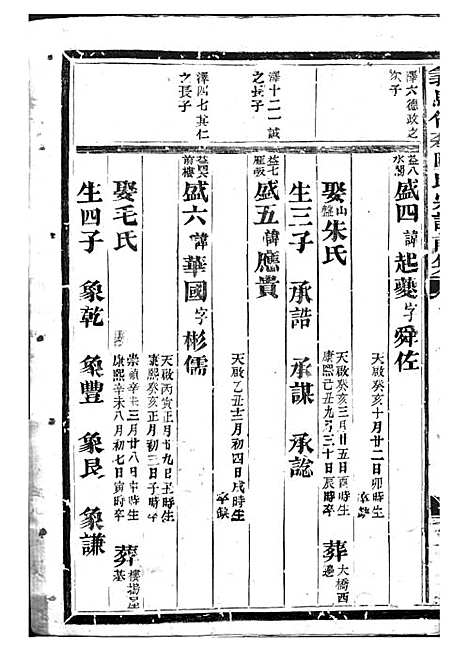 澤六德政之次子
益八水閣
盛四諱起夔字舜佐
天啟癸亥十月廿二日卯時生
卒缺
娶山盤朱氏
天啟癸亥三月廿五日酉時生
康熙己丑九月三十日辰時卒
葬大橋西邊
生三子 承誥 承謀 承諗
澤十二一誠之長子
益七
盛五諱應貴
天啟乙丑十二月初四日戌時生
卒缺
澤四七其仁之長子
前樓
盛六諱華國字彬儒
天啟丙寅正月廿九日丑時生
康熙癸亥正月初三日子時卒
娶毛氏
崇禎辛未三月廿八日申時生
康熙辛未八月初七日寅時卒
葬樓塘
生四子 象乾 象豐 象艮 象謙